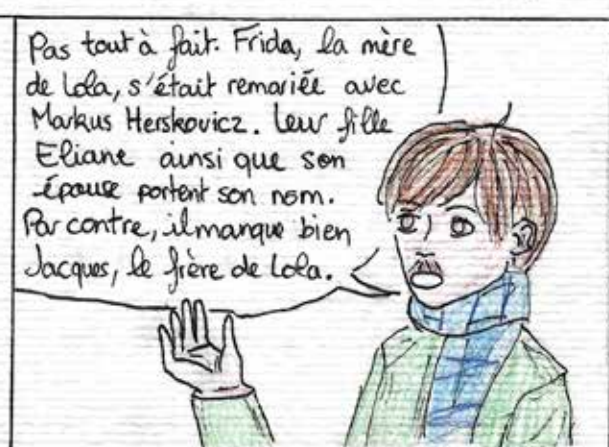 Pas tout à fait. Frida, la mère
de Lola, s'était remariée avec
Markus Herskovicz. Leur fille
Eliane ainsi que son
épouse portent son nom.
Par contre, il manque bien
Jacques, le frère de Lola.